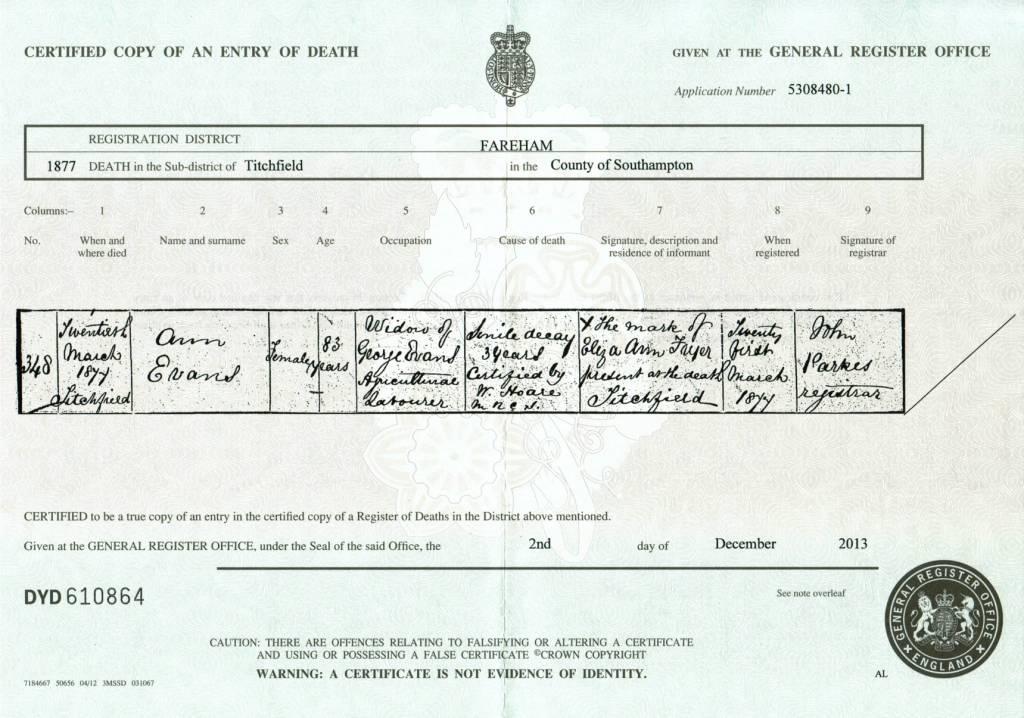 CERTIFIED COPY OF AN ENTRY OF DEATH
GIVEN AT THE GENERAL REGISTER OFFICE
Application Number 5308480-1
REGISTRATION DISTRICT
FAREHAM
1877 DEATH in the Sub-district of Titchfield in the County of Southampton
Columns:– 1 2 3 4 5 6 7 8 9
No.
When and
where died
Name and surname
Sex
Age
Occupation
Cause of death
Signature, description and
residence of informant
When
registered
Signature of
registrar
348
Twentieth
March
1877
Titchfield
Ann
Evans
Female
83
years
Widow of
George Evans
Agricultural
Labourer
Senile decay
3 years
Certified by
W. Hoare
X The mark of
Eliza Ann Fryer
present at the death
Titchfield
Twenty
first
March
1877
John
Parkes
registrar
CERTIFIED to be a true copy of an entry in the certified copy of a Register of Deaths in the District above mentioned.
Given at the GENERAL REGISTER OFFICE, under the Seal of the said Office, the 2nd day of December 2013
DYD 610864
See note overleaf
GENERAL REGISTER OFFICE
ENGLAND
CAUTION: THERE ARE OFFENCES RELATING TO FALSIFYING OR ALTERING A CERTIFICATE
AND USING OR POSSESSING A FALSE CERTIFICATE ©CROWN COPYRIGHT
WARNING: A CERTIFICATE IS NOT EVIDENCE OF IDENTITY.
7184667 50656 04/12 3MSSD 031067
AL